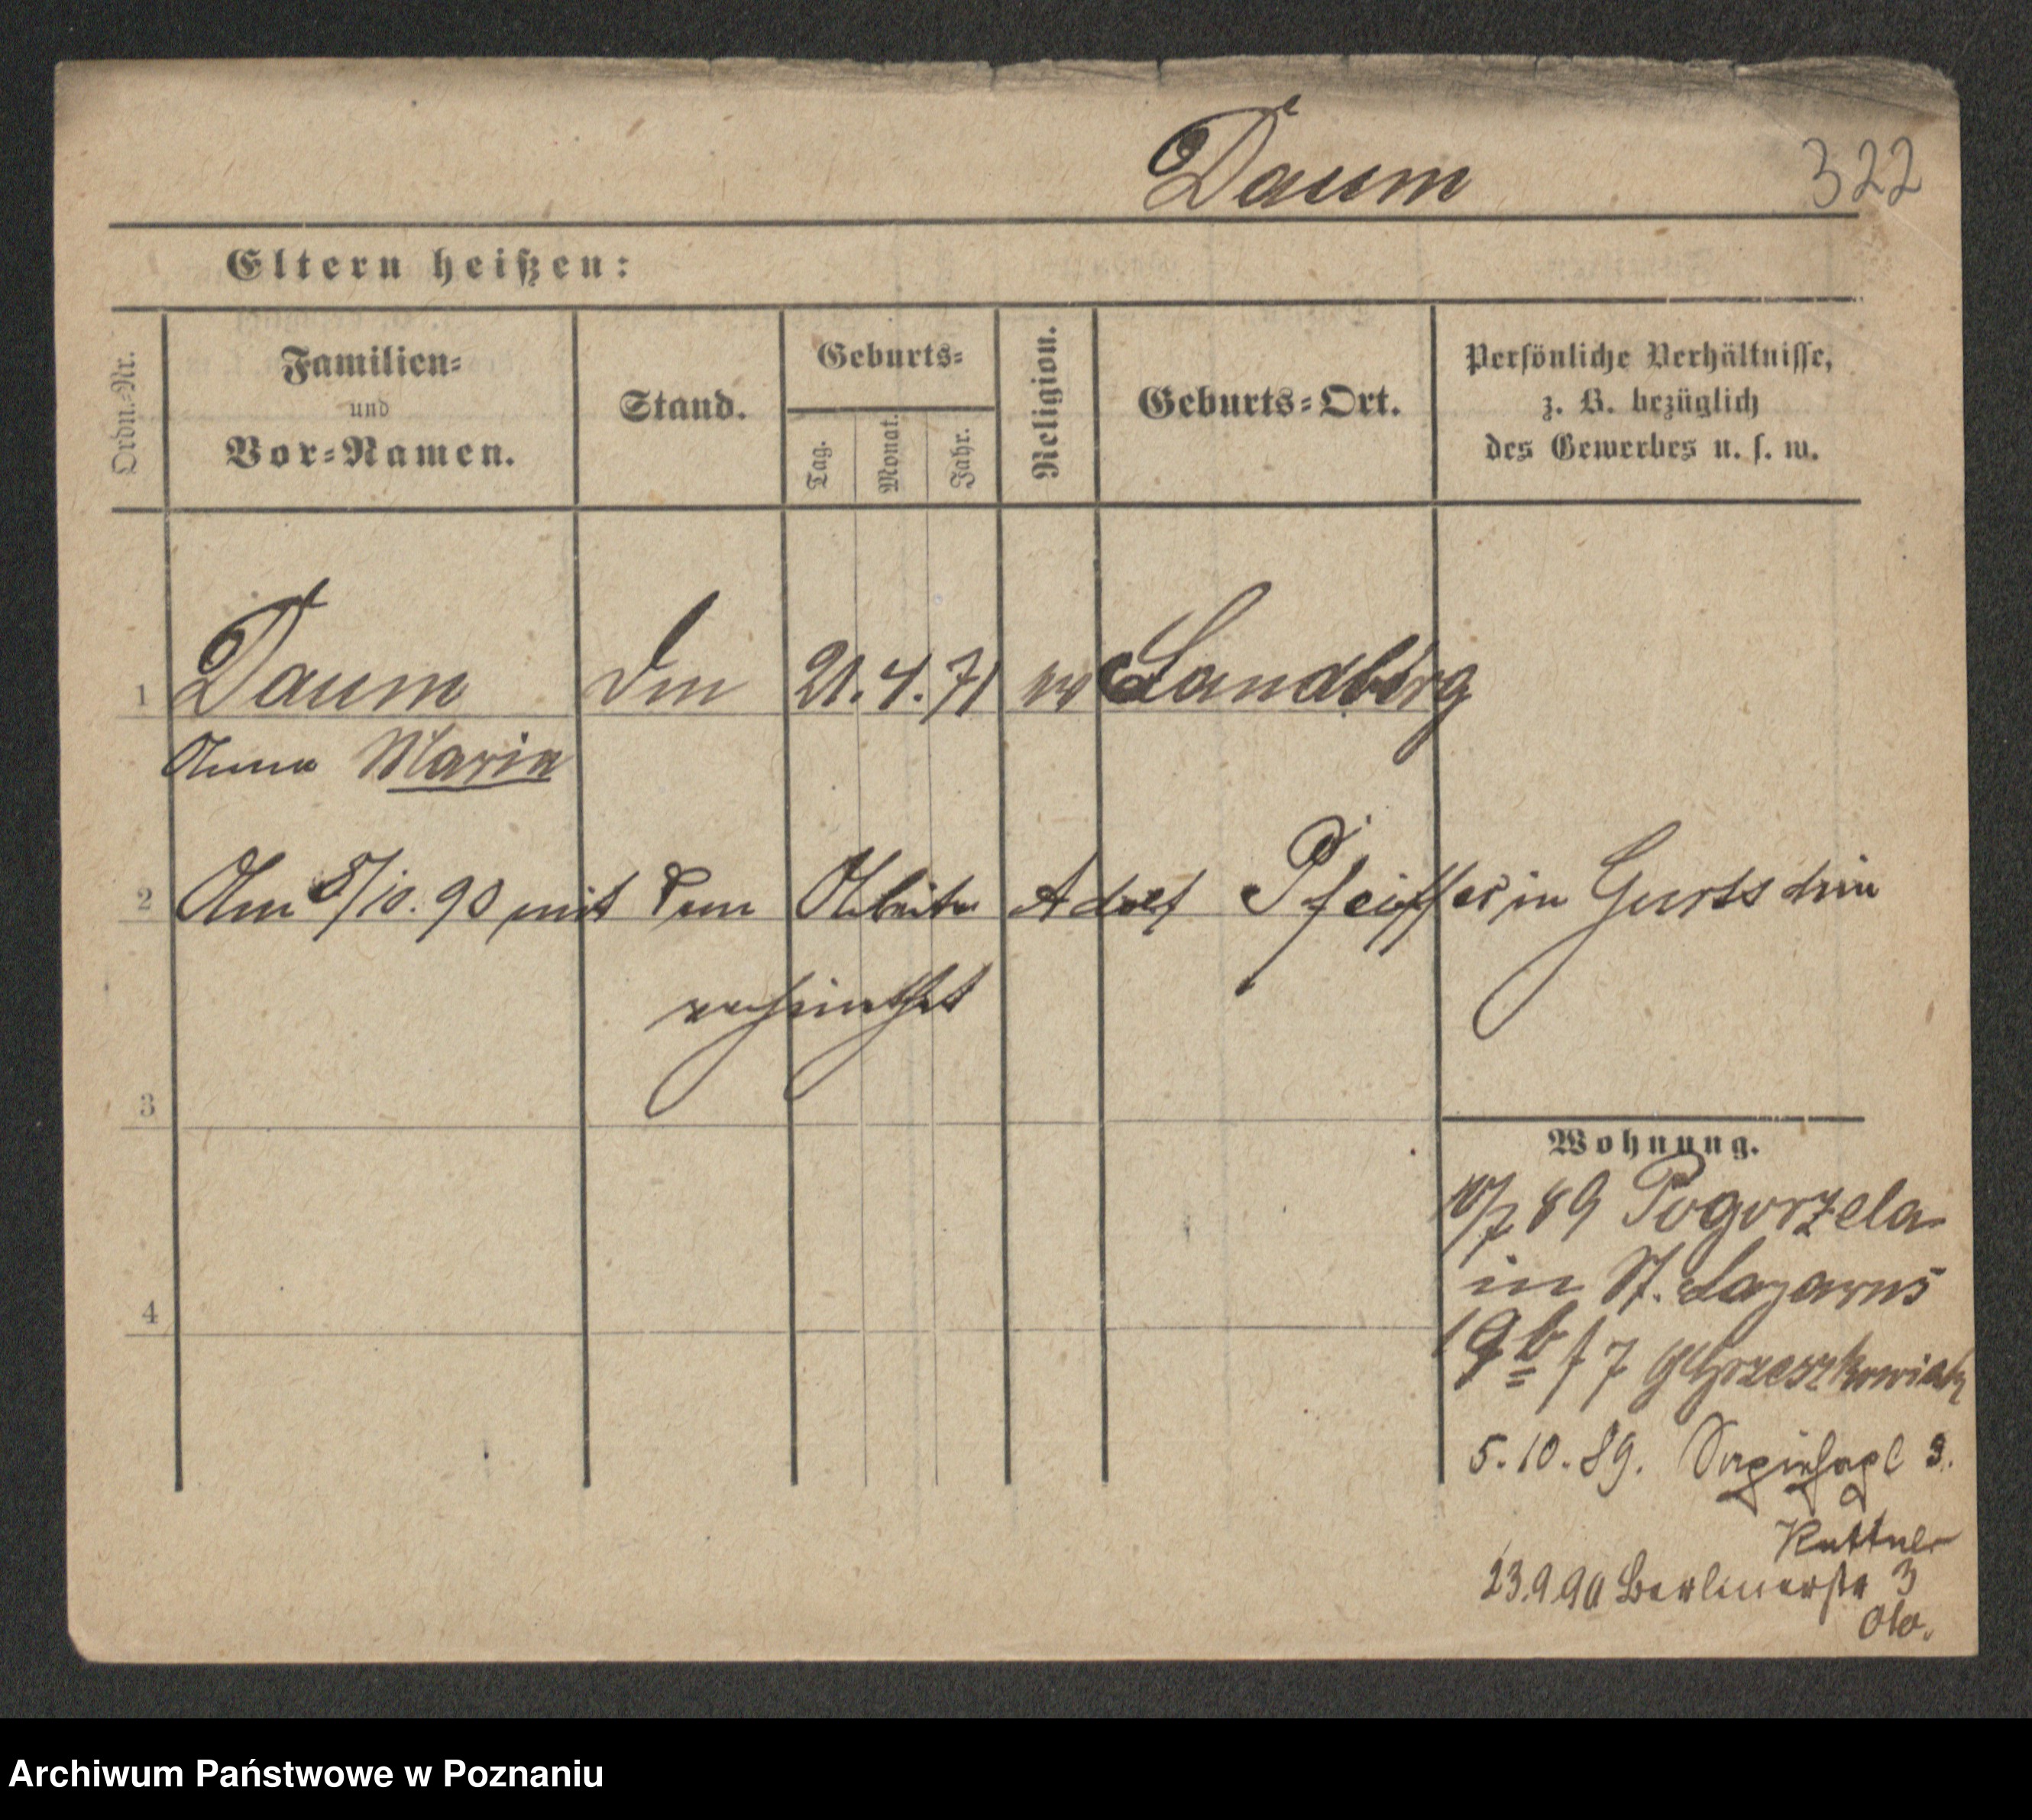 Daum 322
Eltern heißen:
Ordn.-Nr.
Familien-
und
Vor-Namen.
Stand.
Geburts-
Tag. Monat. Jahr.
Religion.
Geburts-Ort.
Persönliche Verhältnisse,
z. B. bezüglich
des Gewerbes u. s. w.
1 Daum 21. 4. 71 Landbrg
Anna Maria
2 Am 8/10. 90 mit dem Arbeiter Adolf Pfeiffer in
verheirathet
3
Wohnung.
10/7 89 Pogorzela
in St. Lazarus
4
19b f 7 Grzeszkowiak
5. 10. 89. 3.
Kuttner
23.9.90 Berlinerstr 3